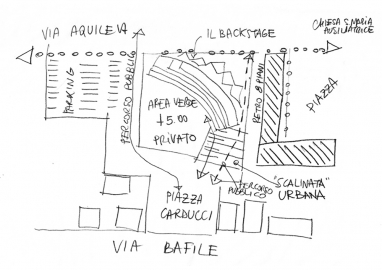 VIA AQUILEVA
IL BACKSTAGE
CHIESA S. MARIA
AUSILIATRICE
PARKING
PERCORSO PUBBLICO
AREA VERDE
+5.00
PRIVATO
RETRO 8 PIANI
PIAZZA
PERCORSO
PUBBLICO
"SCALINATA"
URBANA
PIAZZA
CARDUCCI
VIA BAFILE